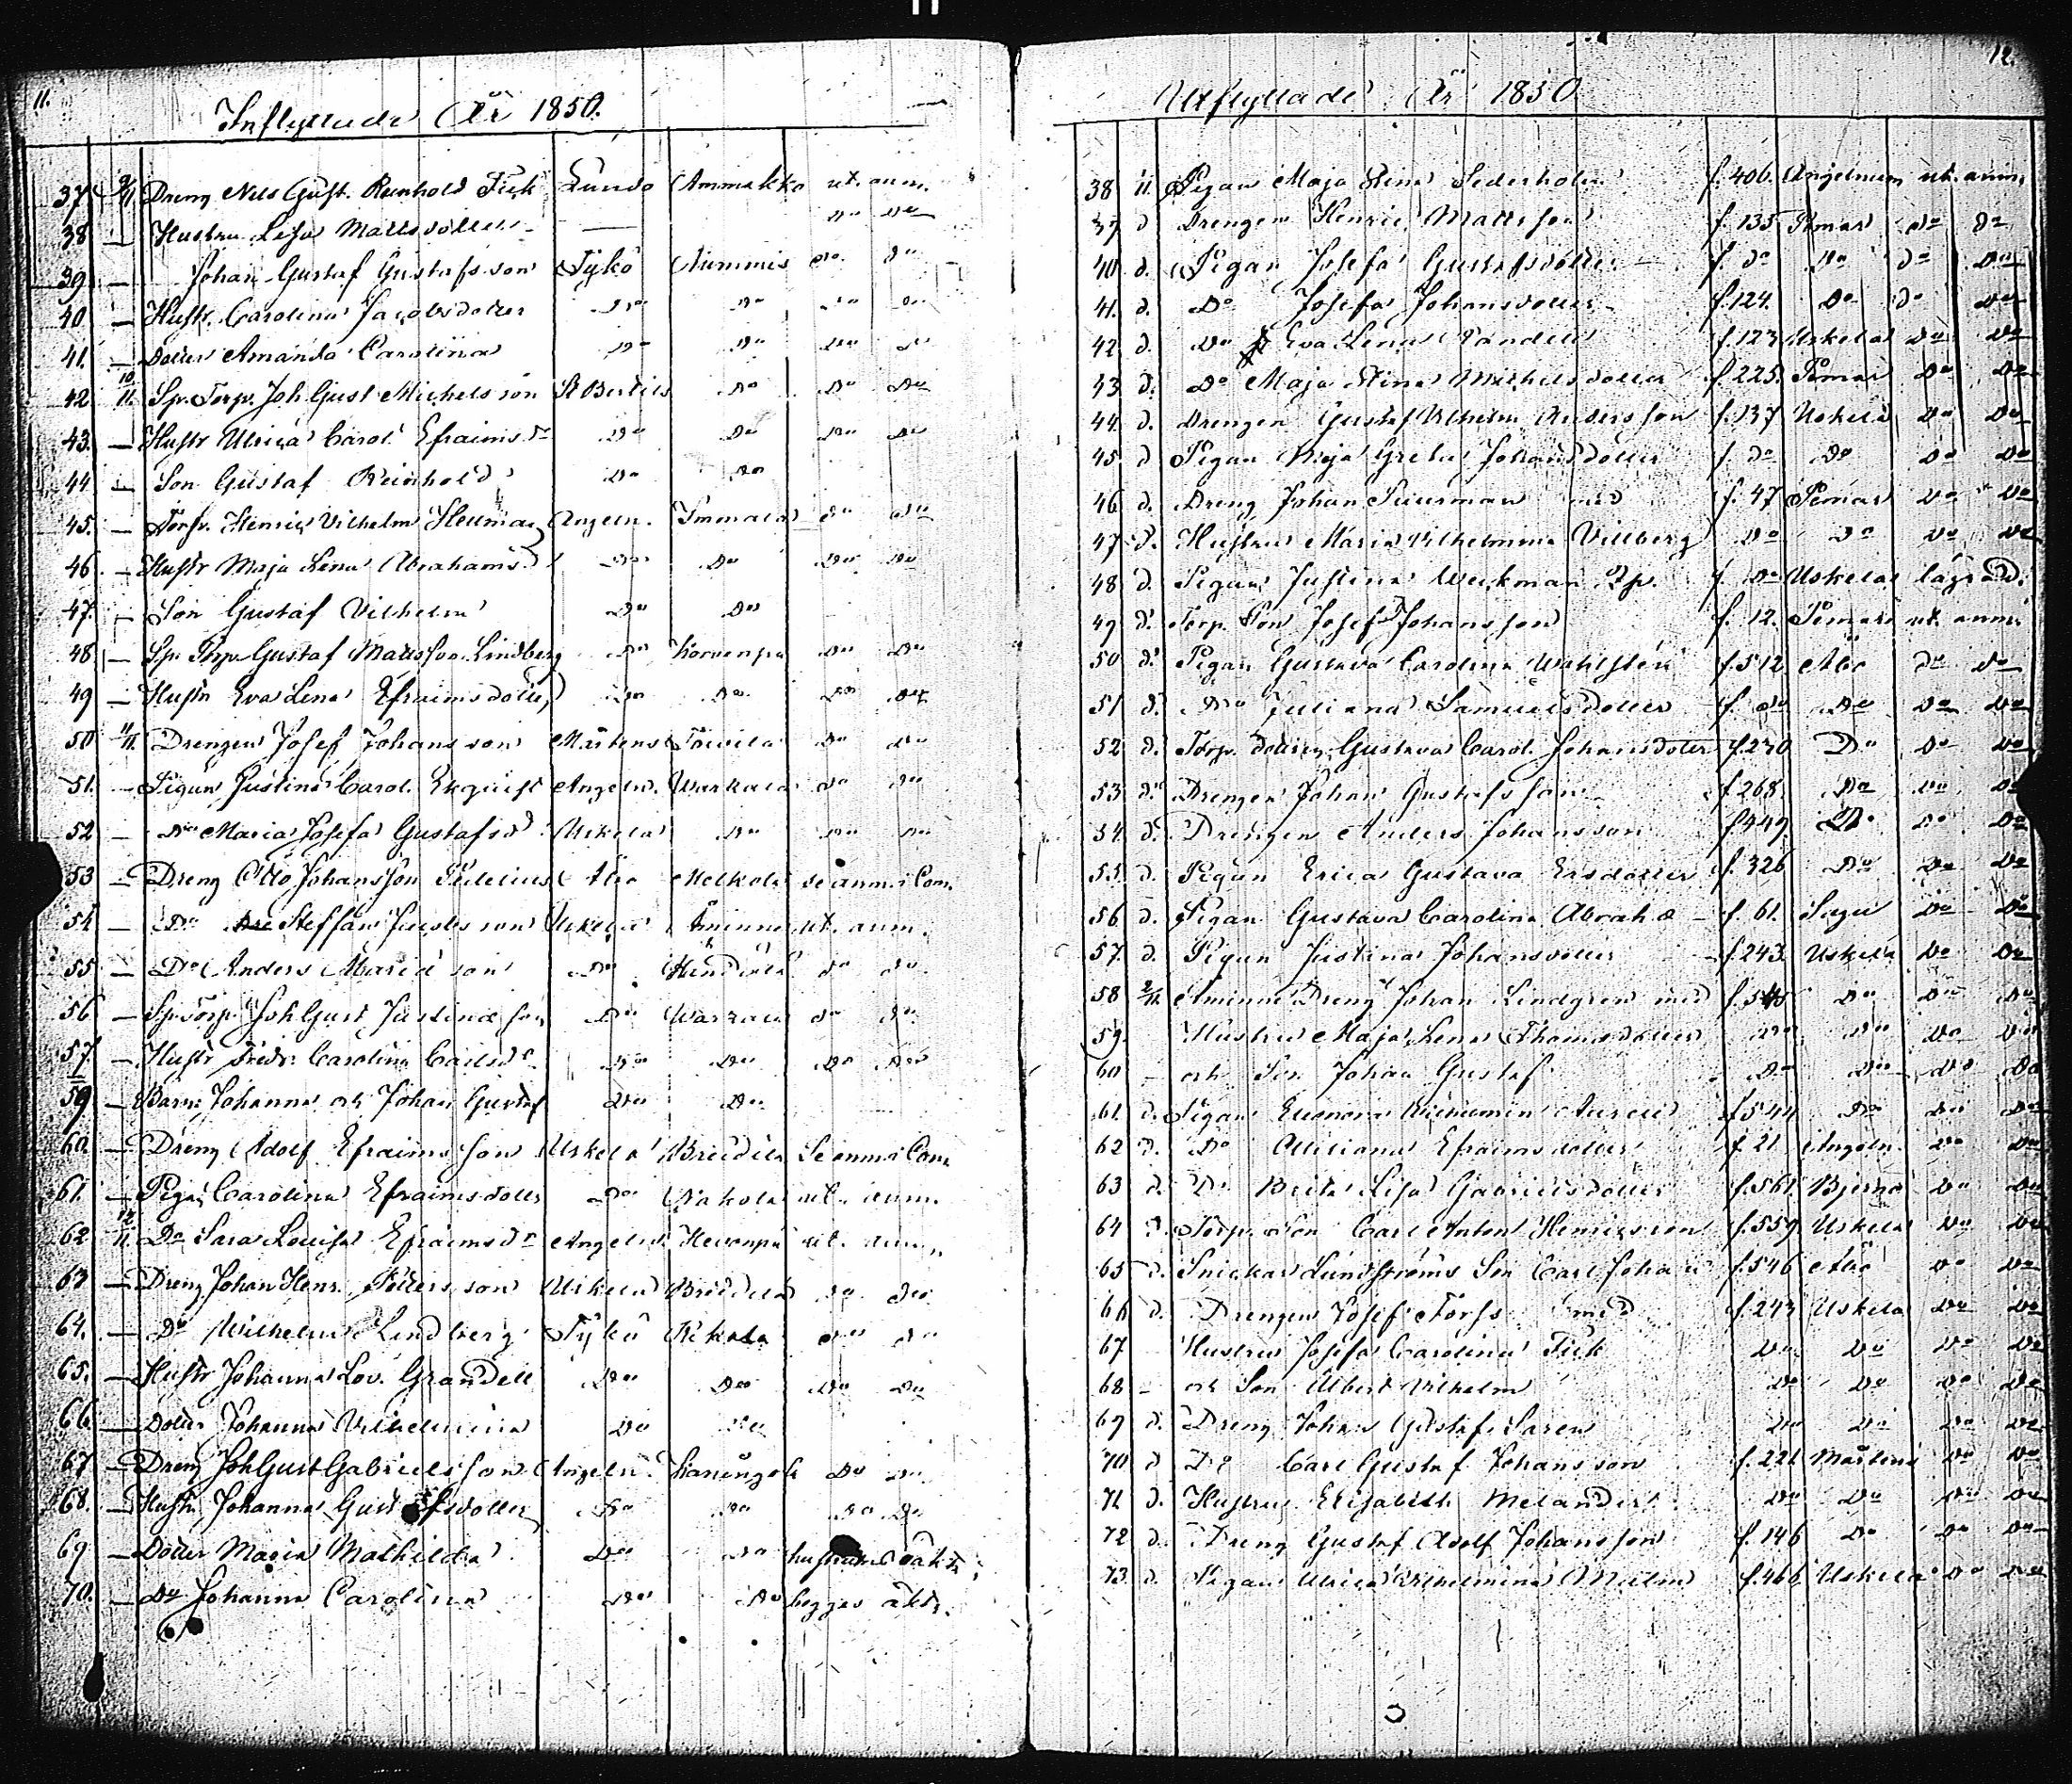 11.
Inflyttade År 1850.
37 9/11 Dreng Nils Gust. Renhold Fick Lundo Ammakko ut. anm.
38 — Hustru Lisa Mattsdotter — Do Do
39 — Johan Gustaf Gustafsson Tykö Nummis do. do
40 — Hustr. Carolina Jacobsdotter Do Do Do Do
41. — Dotter Amanda Carolina Do Do Do Do
42 10/11. Sp. Torp. Joh Gust Michelsson St Bertils Do Do Do
43. — Hustr Ulrica Carol. Efraimsdr Do Do Do Do
44 — Son Gustaf Reinhold Do Do
45. — Torp. Henric Vilhelm Angeln. Immala do do
46. — Hustr Maja Lena Abrahamsd Do Do Do Do
47. — Son Gustaf Vilhelm Do Do
48 — Sp. Torp. Gustaf Mattsson Lindberg Do Korvenpä Do Do
49 — Hustr Eva Lena Efraimsdotter Do Do Do Do
50 11/11. Drengen Josef Johansson Mårtens Do Do
51. — Pigan Justina Carol. Ekqvist Angeln. Warkala do do
52 — Do Maria Josefa Gustafsd. Uskela Do Do Do
53 — Dreng Otto Johansson Åbo se anm. i Com.
54 — Do Steffan Uskela Åminne ut. anm.
55 — Do Anders son Do do do
56 — Sp. Torp. Joh Gust Justinæ son Do do do
57. — Hustr Fredr. Carolina Carlsdr Do Do Do Do
59 — Barn: Johanna och Johan Gustaf Do Do
60. — Dreng Adolf Efraimsson Uskela Breidila Se anm. i Com.
61. — Piga Carolina Efraimsdotter Do Nakola ut. anm.
62 12/11. Do Sara Lovisa Efraimsdr Angeln. Hevonpä ut. anm.
63 — Dreng Johan Henr. Petersson Uskela Breidila Do do
64. — Do Wilhelm Lindberg Tykö Kekola do do
65. — Hustr Johanna Lov. Grandell Do Do Do Do
66. — Dotter Johanna Vilhelmina Do Do
67 — Dreng Joh Gust Gabrielsson Angeln. Do Do
68. — Hustr. Johanna Gustafsdotter Do Do Do Do
69 — Dotter Maria Mathilda Do Do hustruns äkta;
70. — Do Johanna Carolina Do Do begges äkta.
12.
Utflyttade År 1850
38 11. Pigan Maja Lena Sederholm f. 406. Angelnim ut. anm.
39 d Drengen Henric Mattsson f. 135 Pemar do do
40 d. Pigan Josefa Gustafsdotter — f. do Do do Do
41. d. Do Josefa Johansdotter f. 124. Do do Do
42 d. Do Eva Lena f. 123 Uskela do Do
43 d. Do Maja Stina Michelsdotter f. 225. Pemar Do Do
44. d. Drengen Gustaf Vilhelm Andersson f. 137 Uskela Do Do
45. d Pigan Maja Greta Johansdotter f. do Do Do Do
46 d. Dreng Johan med f. 47 Pemar Do Do
47 d. Hustru Maria Vilhelmina Villberg Do Do Do Do
48 d. Pigan Justina Weckman f. Do Uskela
49 d. Torp. Son Josef Johansson f. 12. Pemar ut anm.
50 d. Pigan Gustava Carolina Wahlstén f. 512 Åbo do Do
51 d. Do Juliana Samuelsdotter f. do Do Do Do
52 d. Torp. dotren Gustava Carol. Johansdoter f. 270 Do Do Do
53 d. Drengen Johan Gustafsson f. 268. Do Do Do
54. d. Drengen Anders Johansson f. 449 Do Do Do
55. d. Pigan Erica Gustava Ersdotter f. 326 Do Do Do
56 d. Pigan Gustava Carolina Abrah æ — f. 61. Sagu Do Do
57. d. Pigan Justina Johansdotter f. 243. Uskela Do Do
58 2/11. Åminne Dreng Johan Lindgren med f. 545 Do Do Do
59. Hustru Maja Lena Thomasdotter Do Do Do Do
60 — och Son Johan Gustaf Do Do Do Do
61. d. Pigan Eleonora f. 544 Do Do Do
62 d. Do Efraimsdotter f. 21 Angeln. Do Do
63 d. Do Brita Lisa Gabrielsdotter f. 561 Bjerno Do Do
64 d. Torp. Son Carl Anton Henricsson f. 559 Uskela Do Do
65 d. Snickar Lundströms Son Carl Johan f. 546 Åbo Do Do
66 d. Drengen Josef Törfs med f. 243 Uskela Do Do
67 Hustru Josefa Carolina Fick Do Do Do Do
68 — och Son Albert Vilhelm Do Do Do Do
69 d. Dreng Johan Gustaf Saren Do Do Do Do
70 d Do Carl Gustaf Johansson f. 221 Martens Do Do
71 d. Hustru Elisabeth Melander Do Do Do Do
72 d. Dreng Gustaf Adolf Johansson f. 146 Do Do Do
73 d. Pigan Ulrica Vilhelmina Malm f. 466 Uskela Do Do